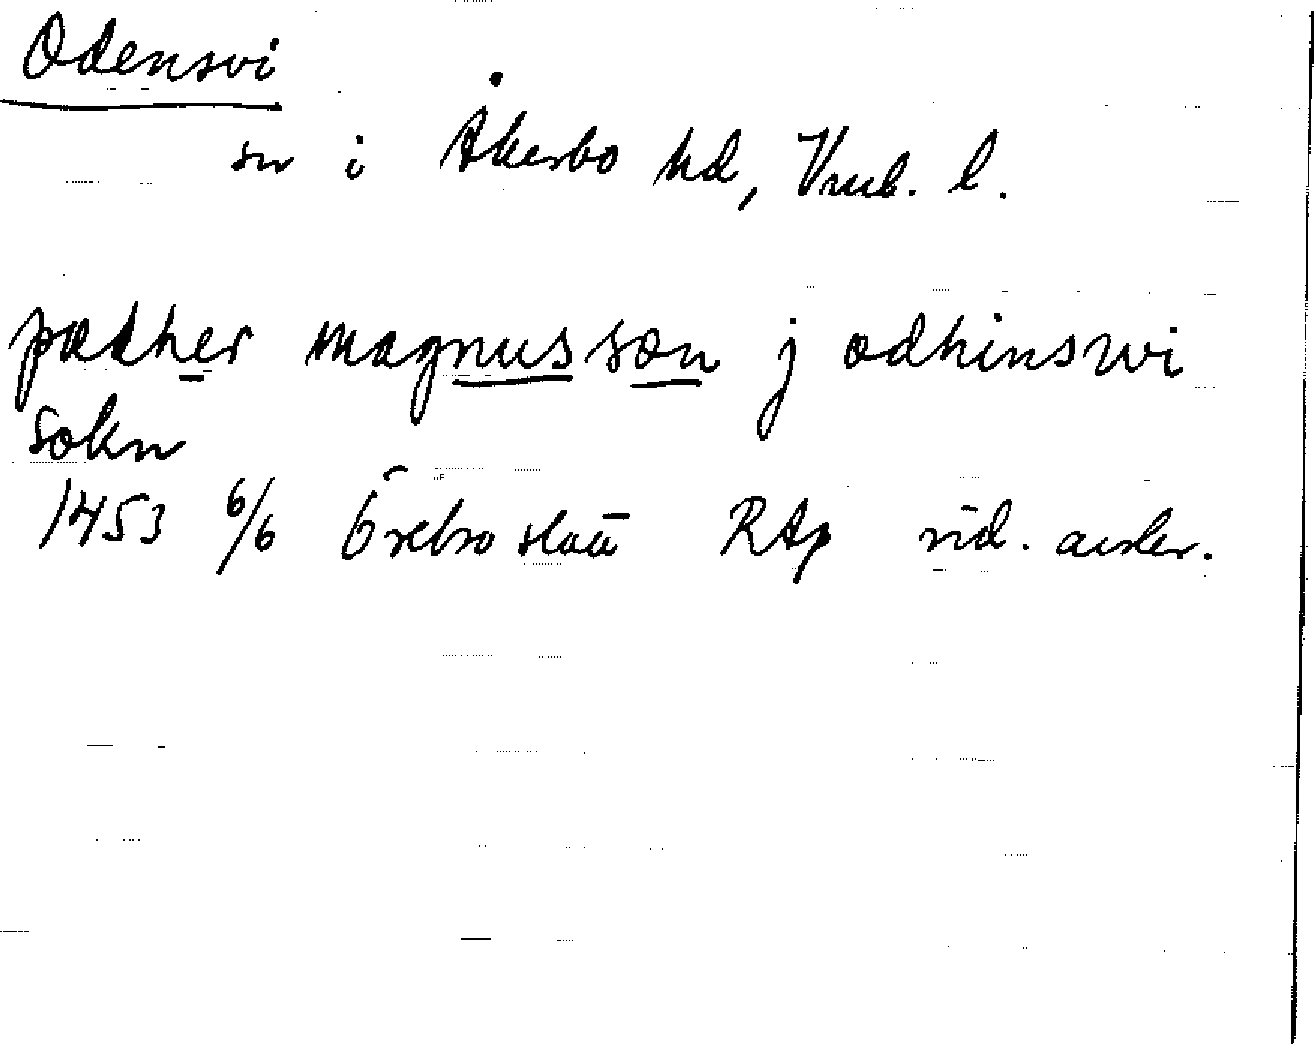 Odensvi
sn i Åkerbo hd, Vmb. l.
pædher magnusson j odhinswi
sokn
1453 6/6 Örebro RAp sid.